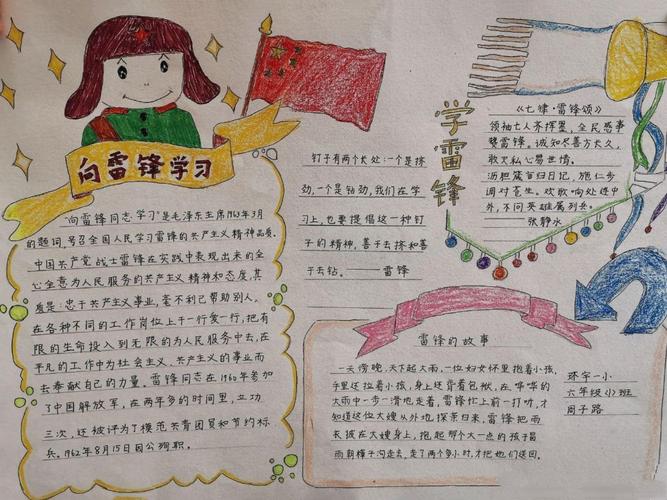 向雷锋学习
"向雷锋同志学习"是毛泽东主席1963年3月
的题词,号召全国人民学习雷锋的共产主义精神品质。
中国共产党战士雷锋在实践中表现出来的全
心全意为人民服务的共产主义精神和态度,其
实质是:忠于共产主义事业,毫不利己帮助别人。
在各种不同的工作岗位上干一行爱一行,把有
限的生命投入到无限的为人民服务中去,在
平凡的工作中为社会主义、共产主义的事业而
去奉献自己的力量。雷锋同志在1960年参加
了中国解放军,在两年多的时间里,立功
三次,还被评为了模范共青团员和节约标
兵。1962年8月15日因公殉职。
钉子有两个长处:一个是挤
劲,一个是钻劲,我们在学
习上,也要提倡这一种钉
子的精神,善于去挤和善
于去钻。——雷锋
学雷锋
《七律·雷锋颂》
领袖七人齐挥墨,全民感事
赞雷锋。诚知尽善方长久,
敢灭私心易世情。
沥胆箴言归日记,施仁步
调对苍生。欢歌响处连中
外,不问英雄属列兵。
——张静水
雷锋的故事
一天傍晚,天下起大雨,一位妇女怀里抱着小孩,
手里还拉着小孩,身上还背着包袱,在哗哗的
大雨中一步一滑地走着,雷锋忙上前一打听,才
知道这位大嫂从外地探亲归来,雷锋把雨
衣披在大嫂身上,抱起那个大一点的孩子冒
雨朝樟子沟走去,走了两个多小时,才把他们送回。
环宇一小
六年级小班
周子路